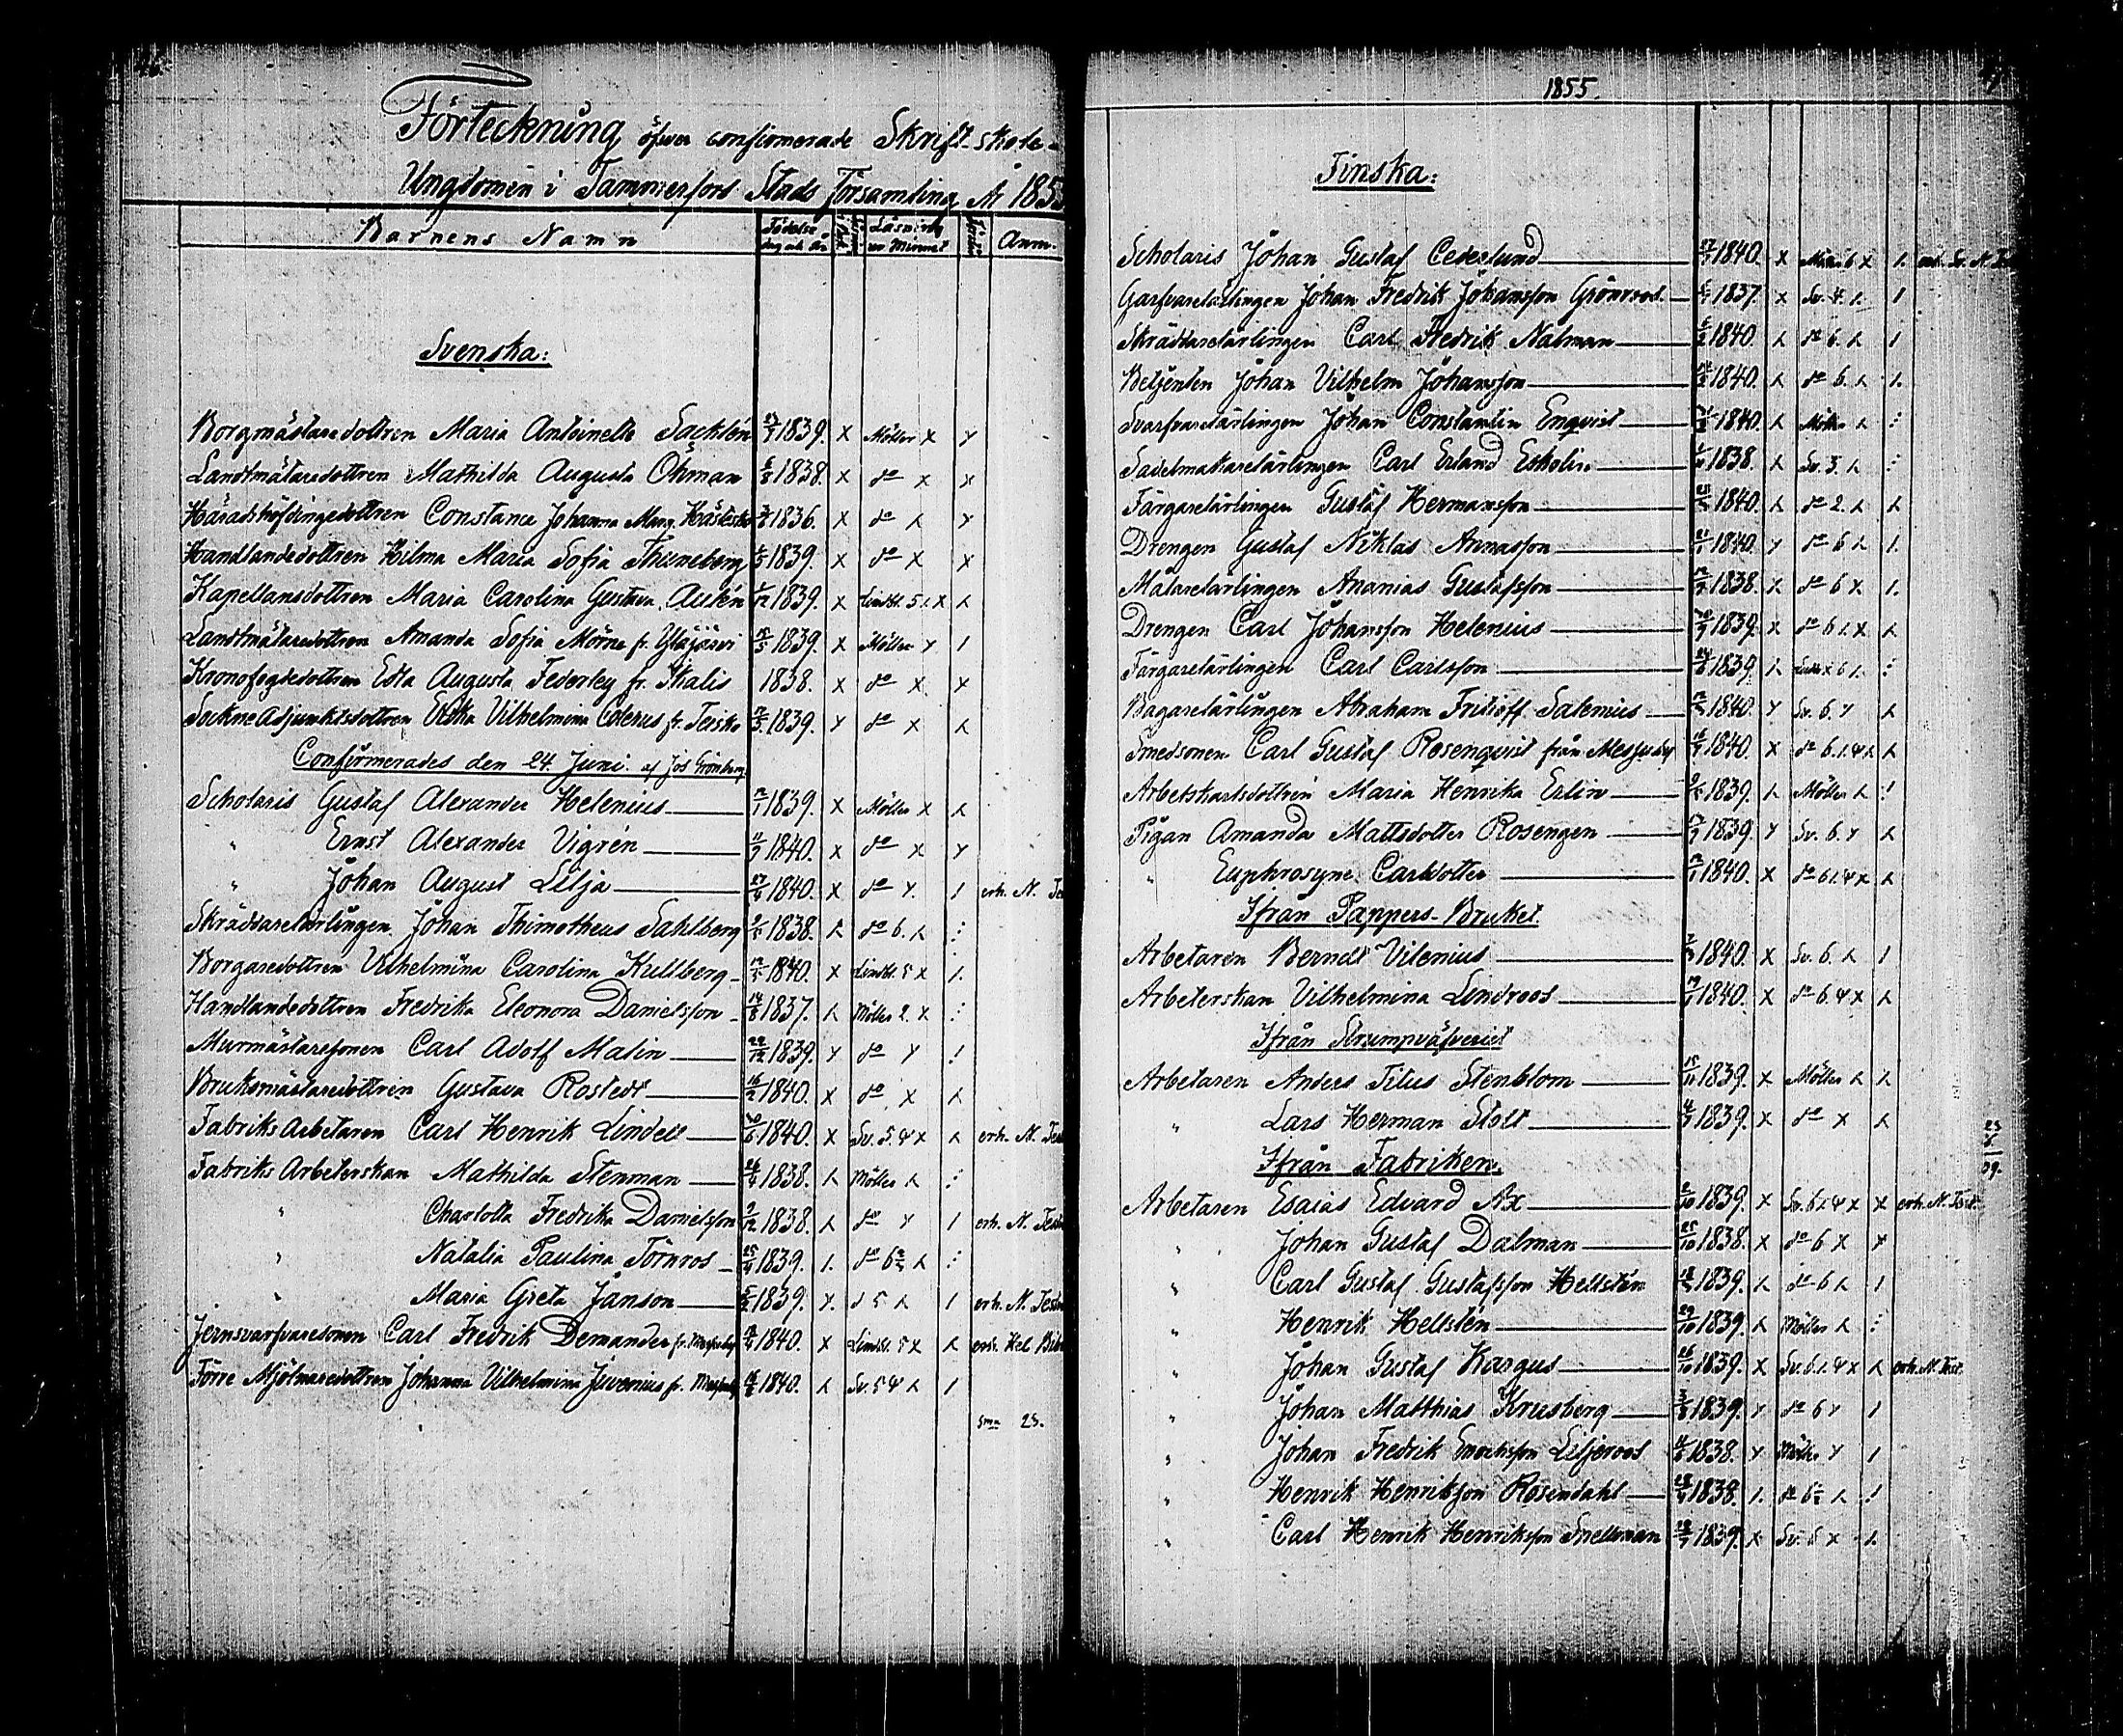 46.
Förteckning öfver confirmerade Skrift-skole-
Ungdomen i Tammerfors Stads Församling År 1855
Barnens Namn Födelse dag och år Läsning ur Minnet Anm.
Svenska:
Borgmästaredottren Maria Antoinette Sacklén 23/7 1839. x Möller x y
Landtmätaredottren Mathilda Augusta Öhman 1838. x do x y
Häradshöfdingedottren Constance Johanna Marg. 1836. x do λ y
Handlandedottren Hilma Maria Sofia Thuneberg 1839. x do x x
Kapellansdottren Maria Carolina Gustava Aulén 1/12 1839. x Lindbl. 5 x λ
Landtmätaredottren Amanda Sofia Mörne fr. Ylöjärvi 1839. x Möller y 1
Kronofogdedottren Edla Augusta Federley fr. Ikalis 1838. x do x x
Sockne Adjunktsdottren Ulrika Vilhelmina Colerus fr. Teisko 1839. y do x λ
Confirmerades den 24. Juni. af Jos Grönberg.
Scholaris Gustaf Alexander Helenius 1839. x Möller x λ
" Ernst Alexander Vigrén 1840. x do x y
" Johan August Lilja 1840. x do y. 1 erh. N. Tes
Skräddarelärlingen Johan Thimotheus Sahlberg 1838. λ do 6. λ :
Borgaredottren Vilhelmina Carolina Kullberg 1840. x Lindbl. 5 x 1.
Handlandedottren Fredrika Eleonora Danielsson 14/8 1837. λ Möller 2. x :
Murmästaresonen Carl Adolf Malin 22/12 1839. y do y !
Bruksmästaredottren Gustava Rostedt 16/2 1840. x do x λ
Fabriks Arbetaren Carl Henrik Lindell 1840. x Sv. 5. 4 x λ erh. N. Tes
Fabriks Arbeterskan Mathilda Stenman 1838. λ Möller λ :
" Charlotta Fredrika Danielsson 9/12 1838. λ do y 1 erh. N. Test
" Natalia Paulina Törnros 1839. 1. do 6 λ :
" Maria Greta Janson 1839. y. d 5 λ 1 erh. N. Testa
Jernsvarfvaresonen Carl Fredrik Demander fr. Messuby 1840. x Lindbl. 5 x λ erh. Hel Bibe
Förre Mjölnaredottren Johanna Vilhelmina Juvenius fr. Messuby 1840. λ Sv. 5 4 λ 1
Sma 23.
1855.
Finska:
Scholaris Johan Gustaf Cederlund 1840. x 6 x 1.
Garfvarelärlingen Johan Fredrik Johansson Grönroos 1837. x Sv. 4. 1. 1
Skräddarelärlingen Carl Fredrik Nalman 1840. λ do 6. λ 1
Betjenten Johan Vilhelm Johansson 1840. λ do 6. λ 1.
Svarfvarelärlingen Johan Constantin Enqvist 1840. λ Möller λ :
Sadelmakarelärlingen Carl Erland Eskolin 1838. λ Sv. 3. λ :
Färgarelärlingen Gustaf Hermansson 1840. λ do 2. λ λ
Drengen Gustaf Niklas Annasson 21/1 1840. y do 6 λ 1.
Målarelärlingen Ananias Gustafsson 1838. λ do 6 x 1.
Drengen Carl Johansson Helenius 1839. x do 6 1. x λ
Färgarelärlingen Carl Carlsson 1839. λ 6 1. :
Bagarelärlingen Abraham Fritioff Salenius 1840. y Sv. 6. y λ
Smedsonen Carl Gustaf Rosenqvist från Messuby 1840. x do 6. 1. 4 λ λ
Arbetskarlsdottren Maria Henrika Erlin 1839. λ Möller λ !
Pigan Amanda Mattsdotter Rosengen 1839. y Sv. 6. y λ
" Euphrosyne Carlsdotter 1840. x do 6 1. 4 x λ
Ifrån Pappers-Bruket.
Arbetaren Berndt Vilenius 1840. x Sv. 6. λ 1
Arbeterskan Vilhelmina Lindroos 1840. x do 6. 4 x λ
Ifrån Strumpväfveriet
Arbetaren Anders Titus Stenblom 15/11 1839. x Möller λ λ
" Lars Herman Stolt 1839. x do x λ
Ifrån Fabriken.
Arbetaren Esaias Edvard Ax 2/10 1839. x Sv. 6 1. 4 x x erh. N. Test.
" Johan Gustaf Dalman 25/10 1838. x do 6 x x
" Carl Gustaf Gustafsson Hellstén 1839. λ do 6 λ 1
" Henrik Hellstén 29/10 1839. λ Möller λ :
" Johan Gustaf Kargus 26/10 1839. x Sv. 6. 1. 4 x λ erh. N. Test.
" Johan Matthias Krusberg 1839. y do 6 y 1
" Johan Fredrik Liljeroos 1838. y Möller y 1
" Henrik Henriksson Rosendahl 1838. 1. do 6 λ !
" Carl Henrik Henriksson Snellman 1839. x Sv. 6 x 1.